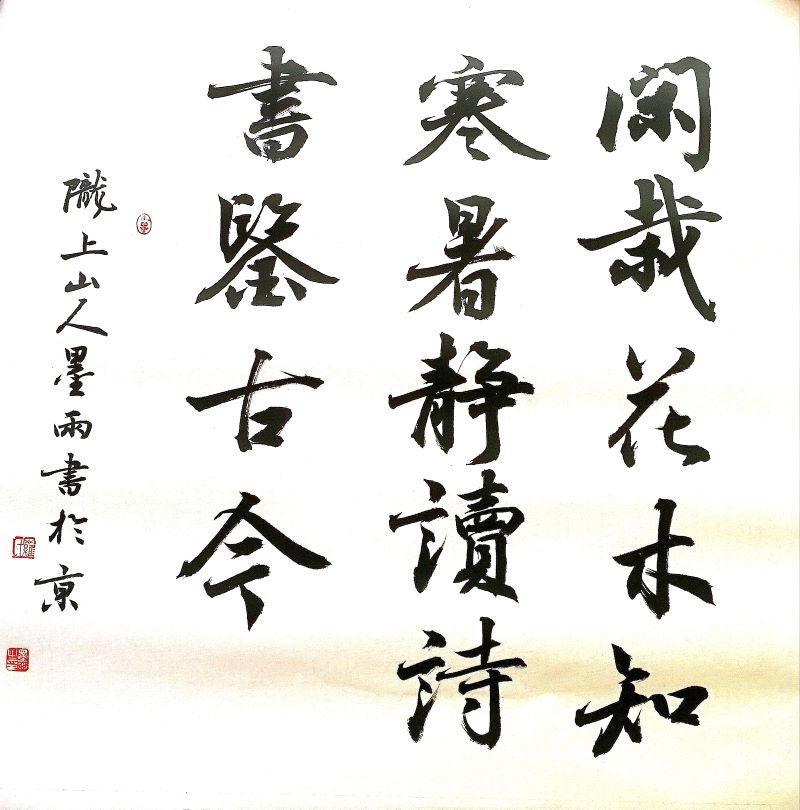 閑栽花木知
寒暑靜讀詩
書鑒古今
隴上山人墨雨書於京